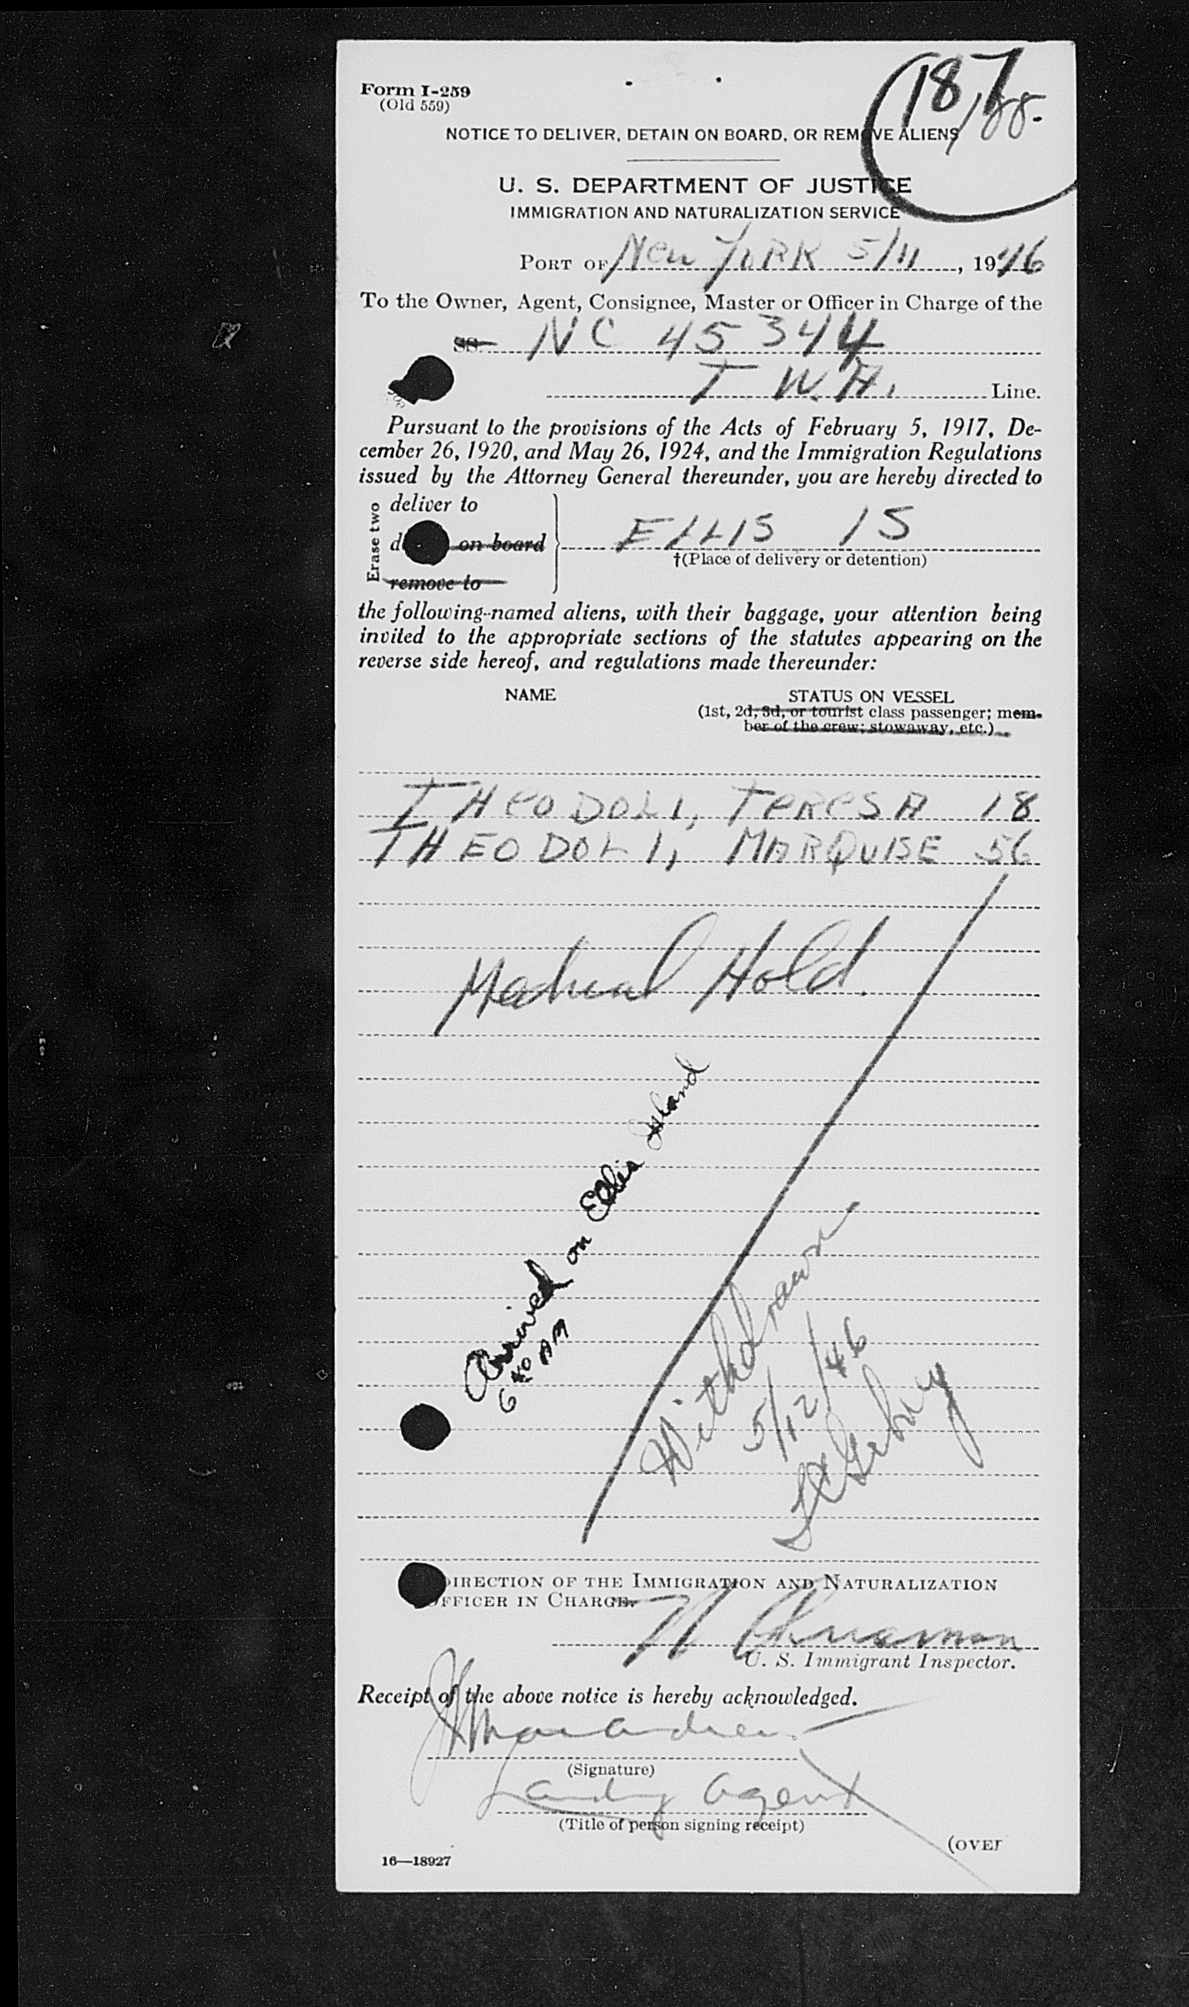 Form I-259
(Old 559)
187/188.
NOTICE TO DELIVER, DETAIN ON BOARD, OR REMOVE ALIENS
U. S. DEPARTMENT OF JUSTICE
IMMIGRATION AND NATURALIZATION SERVICE
PORT OF New YORK 5/11, 1946
To the Owner, Agent, Consignee, Master or Officer in Charge of the
SS. NC 45344
T. W. A. Line.
Pursuant to the provisions of the Acts of February 5, 1917, De-
cember 26, 1920, and May 26, 1924, and the Immigration Regulations
issued by the Attorney General thereunder, you are hereby directed to
Erase two
deliver to
on board
remove to
ELLIS IS
†(Place of delivery or detention)
the following-named aliens, with their baggage, your attention being
invited to the appropriate sections of the statutes appearing on the
reverse side hereof, and regulations made thereunder:
NAME STATUS ON VESSEL
(1st, 2d, 3d, or tourist class passenger; mem-
ber of the crew; stowaway, etc.)
THEODOLI, TERESA 18
THEODOLI, MARQUISE 56
Medical Hold.
Arrived on Ellis Island
6 40 AM
Withdrawn
5/12/46
DIRECTION OF THE IMMIGRATION AND NATURALIZATION
OFFICER IN CHARGE.
U. S. Immigrant Inspector.
Receipt of the above notice is hereby acknowledged.
(Signature)
Landing agent
(Title of person signing receipt)
(OVER
16—18927